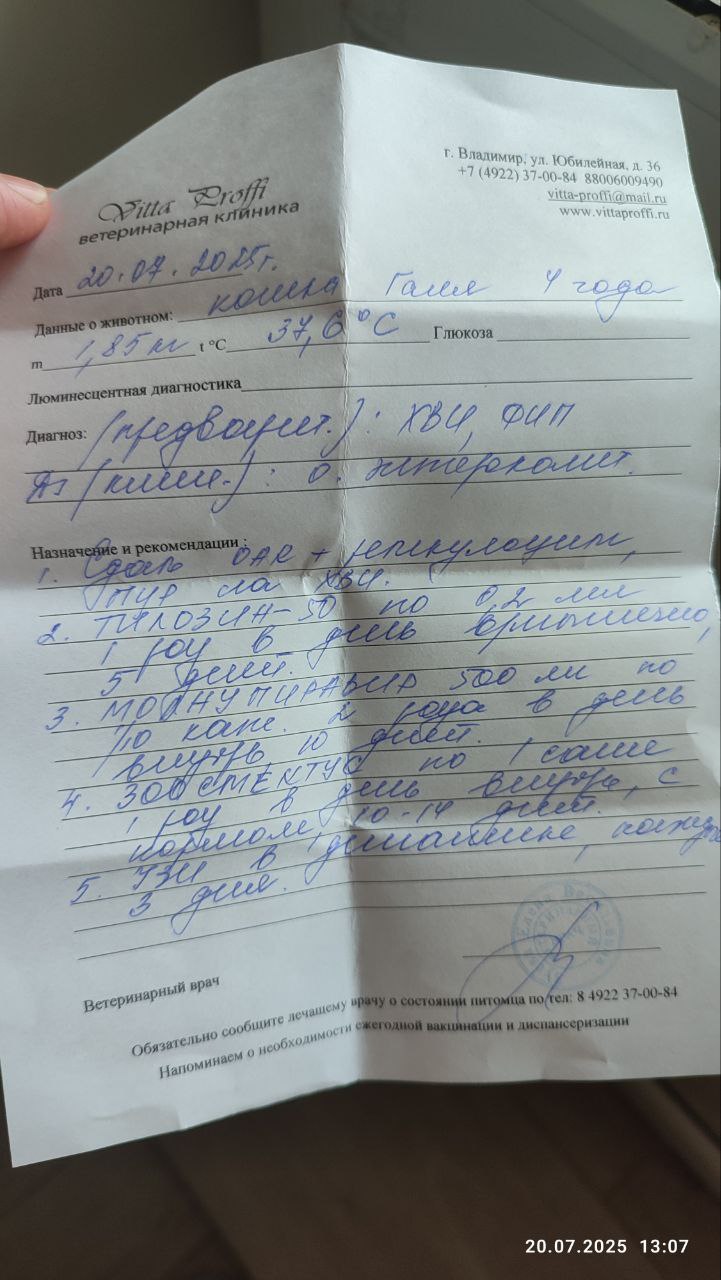 Vitta Proffi
ветеринарная клиника
г. Владимир, ул. Юбилейная, д. 36
+7 (4922) 37-00-84 88006009490
vitta-proffi@mail.ru
www.vittaproffi.ru
Дата 20.07.2025г.
Данные о животном: кошка 4 года
m 1,85 кг t °C 37,6 °C Глюкоза
Люминесцентная диагностика
Диагноз: (предварит.): ХВИ, ФИП
Дз (клин.): о. энтероколит.
Назначение и рекомендации :
1. Сдать ОАК + ретикулоциты,
ПЦР на ХВИ.
2. ТИЛОЗИН-50 по 0,2 мл
1 раз в день внутримышечно,
5 дней.
3. МОЛНУПИРАВИР 500 по
1/10 капс. 2 раза в день
внутрь 10 дней.
4. ЗООСМЕКТУС по 1 саше
1 раз в день внутрь, с
кормом, 10-14 дней.
5. УЗИ в динамике, каждые
3 дня.
Ветеринарный врач
Обязательно сообщите лечащему врачу о состоянии питомца по тел: 8 4922 37-00-84
Напоминаем о необходимости ежегодной вакцинации и диспансеризации
20.07.2025 13:07